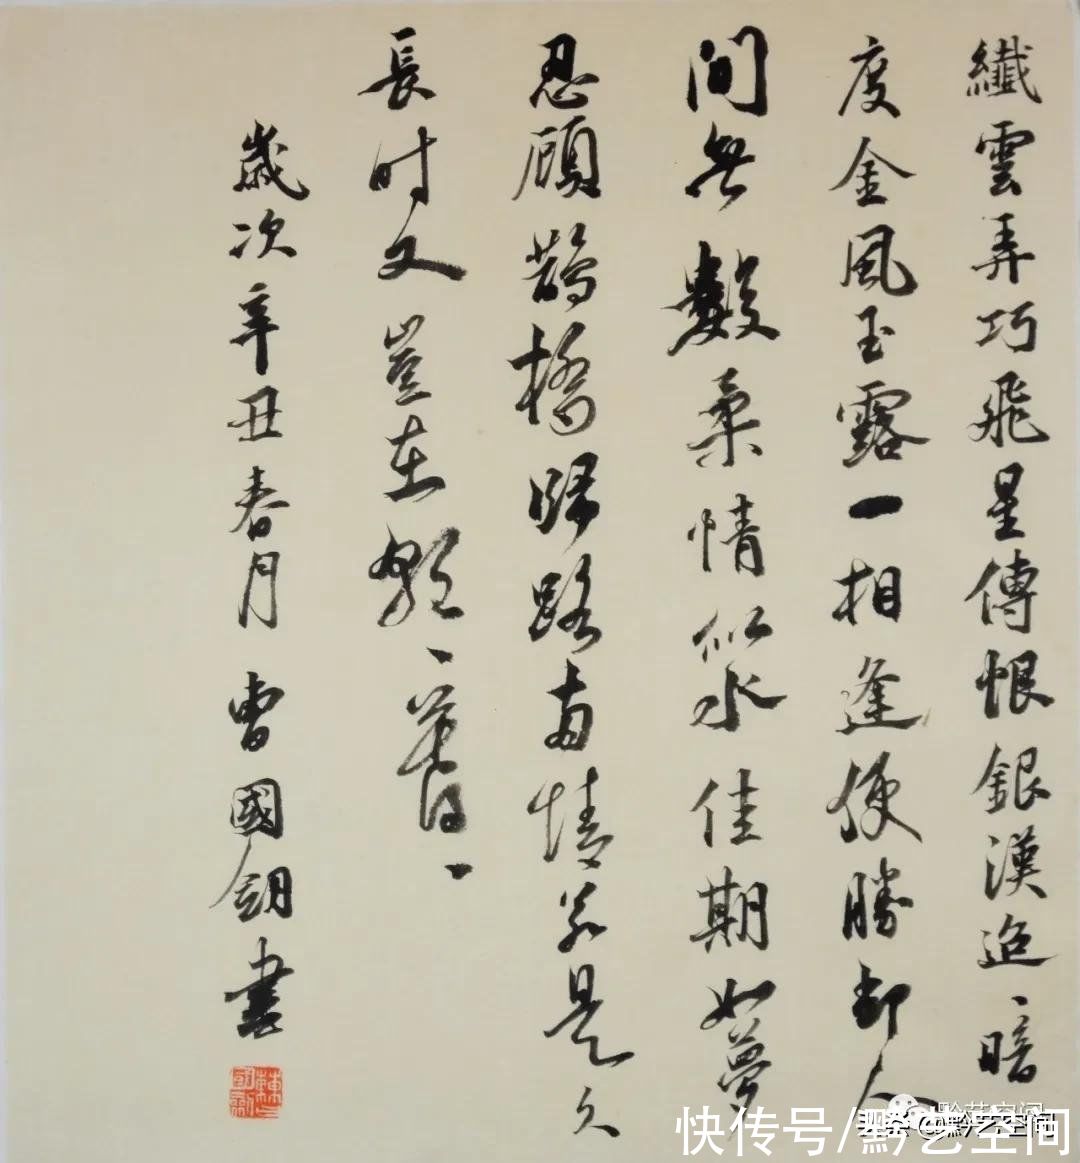 纖雲弄巧飛星傳恨銀漢迢、暗
度金風玉露一相逢便勝却人
間無數柔情似水佳期如夢
忍顧鵲橋歸路兩情若是久
長时又豈在朝、暮、
歲次辛丑春月曹國書
黔艺空间
头条@黔艺空间
快传号/黔艺空间